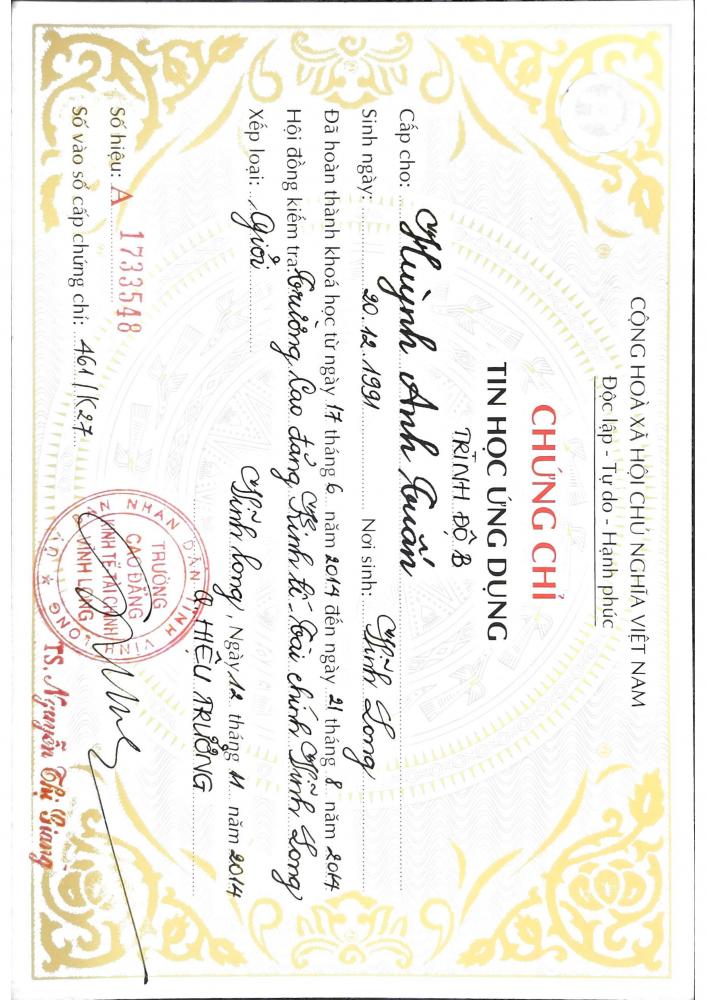 CỘNG HOÀ XÃ HỘI CHỦ NGHĨA VIỆT NAM
Độc lập - Tự do - Hạnh phúc
CHỨNG CHỈ
TIN HỌC ỨNG DỤNG
TRÌNH ĐỘ B
Cấp cho: Huỳnh Anh Tuấn
Sinh ngày: 20.12.1991 Nơi sinh: Vĩnh Long
Đã hoàn thành khoá học từ ngày 17 tháng 6 năm 2014 đến ngày 21 tháng 8 năm 2014
Hội đồng kiểm tra: Trường Cao đẳng Kinh tế - Tài chính Vĩnh Long
Xếp loại: Giỏi
Vĩnh Long, Ngày 12 tháng 11 năm 2014
Q. HIỆU TRƯỞNG
Số hiệu: A 1733548
Số vào sổ cấp chứng chỉ: 461/K27
TRƯỜNG
CAO ĐẲNG
KINH TẾ TÀI CHÍNH
VĨNH LONG
TS. Nguyễn Thị Giang